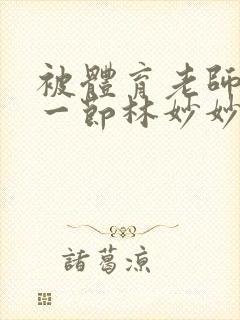 被體育老師
一節林妙妙
諸葛涼